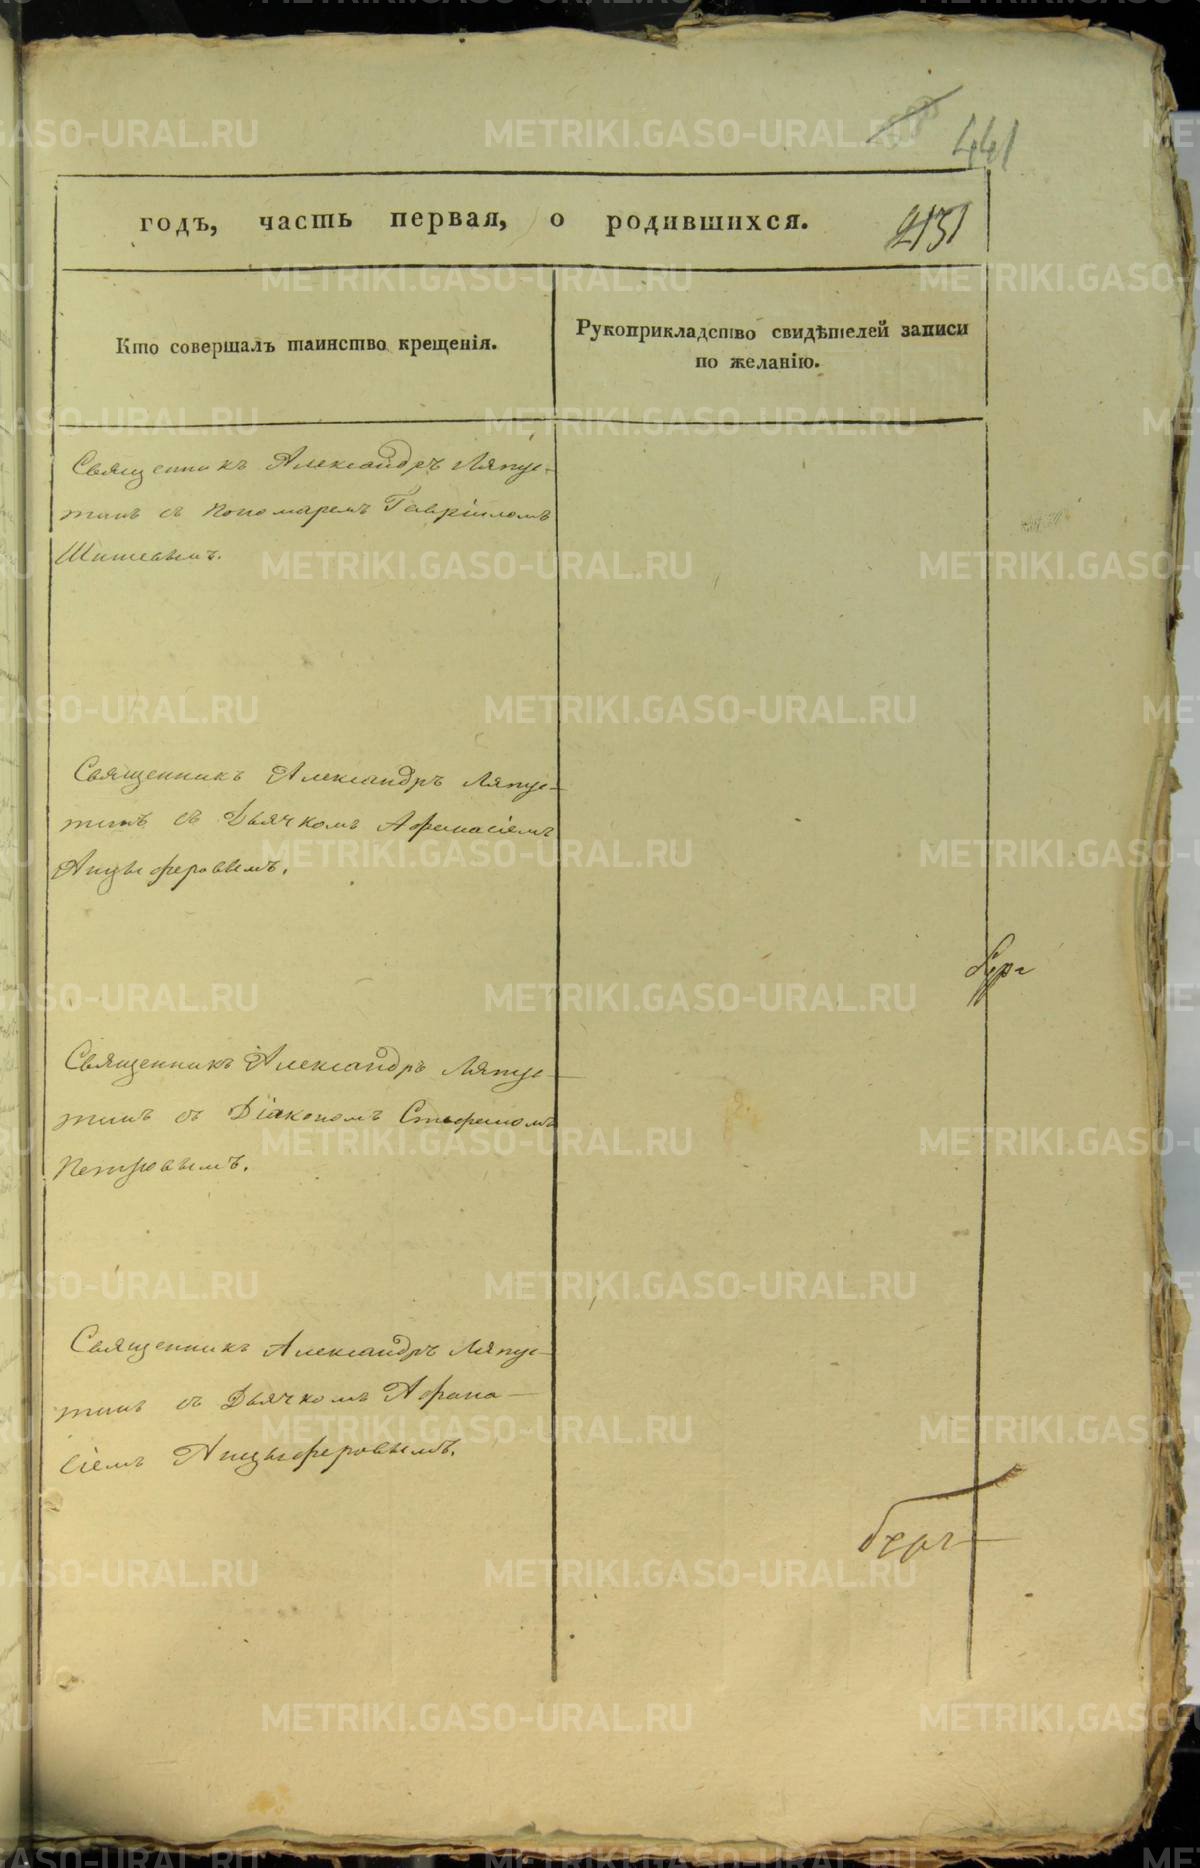 441
годъ, часть первая, о родившихся.
2131
Кто совершалъ таинство крещенія.
Рукоприкладство свидѣтелей записи
по желанію.
Священникъ Александръ Ляпус-
тинъ съ пономаремъ Гавріиломъ
Шишевымъ.
Священникъ Александръ Ляпус-
тинъ съ Дьячкомъ Афанасіемъ
Анцыферовымъ.
Священникъ Александръ Ляпус-
тинъ съ Діакономъ Стефаномъ
Петровымъ.
Священникъ Александръ Ляпус-
тинъ съ Дьячкомъ Афана-
сіемъ Анцыферовымъ.
METRIKI.GASO-URAL.RU